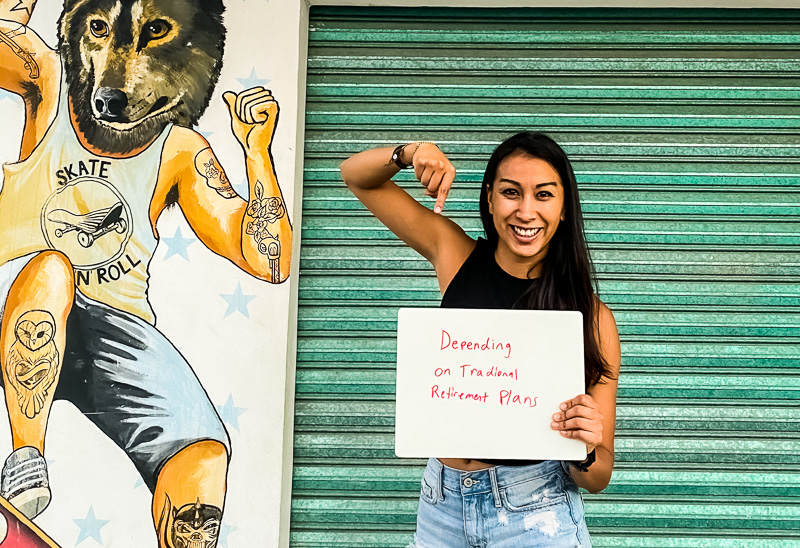 SKATE
N' ROLL
Depending
on Tradional
Retirement Plans